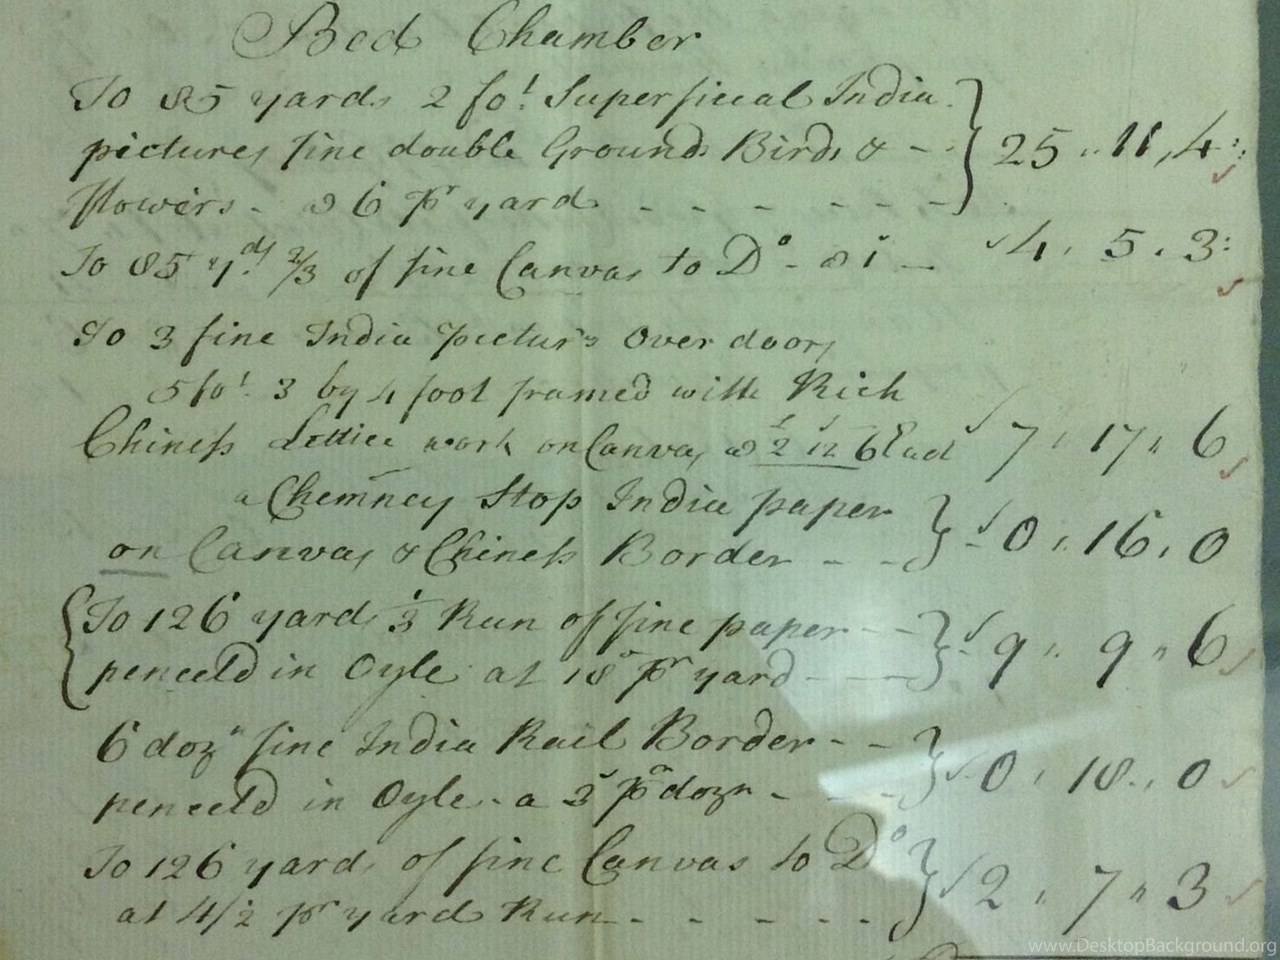 Bed Chamber
To 85 yards 2 fot Superficial India
pictures fine double Grounds Birds & - - 25 .. 11 , 4 :
flowers - a 6 pr yard - - - - - - -
To 85 yds 2/3 of fine Canvas to Do - a 1 - 4 , 5 , 3 :
To 3 fine India Pictur's over doors
5 fot 3 by 4 foot framed with Rich
Chiness Lettice work on Canvas a 2 12 6 Each 7 , 17 " 6
a Chemney Stop India paper
on Canvas & Chiness Border - - - 0 , 16 , 0
To 126 yards 1/3 Run of fine paper - - -
penceld in Oyle at 18 pr yard - - 9 .. 9 " 6
6 dozn fine India Rail Border - - -
penceld in Oyle - a 3 pr dozn - - 0 , 18 , 0
To 126 yards of fine Canvas to Do
at 4/2 pr yard Run - - - - - - 2 , 7 " 3
www.DesktopBackground.org